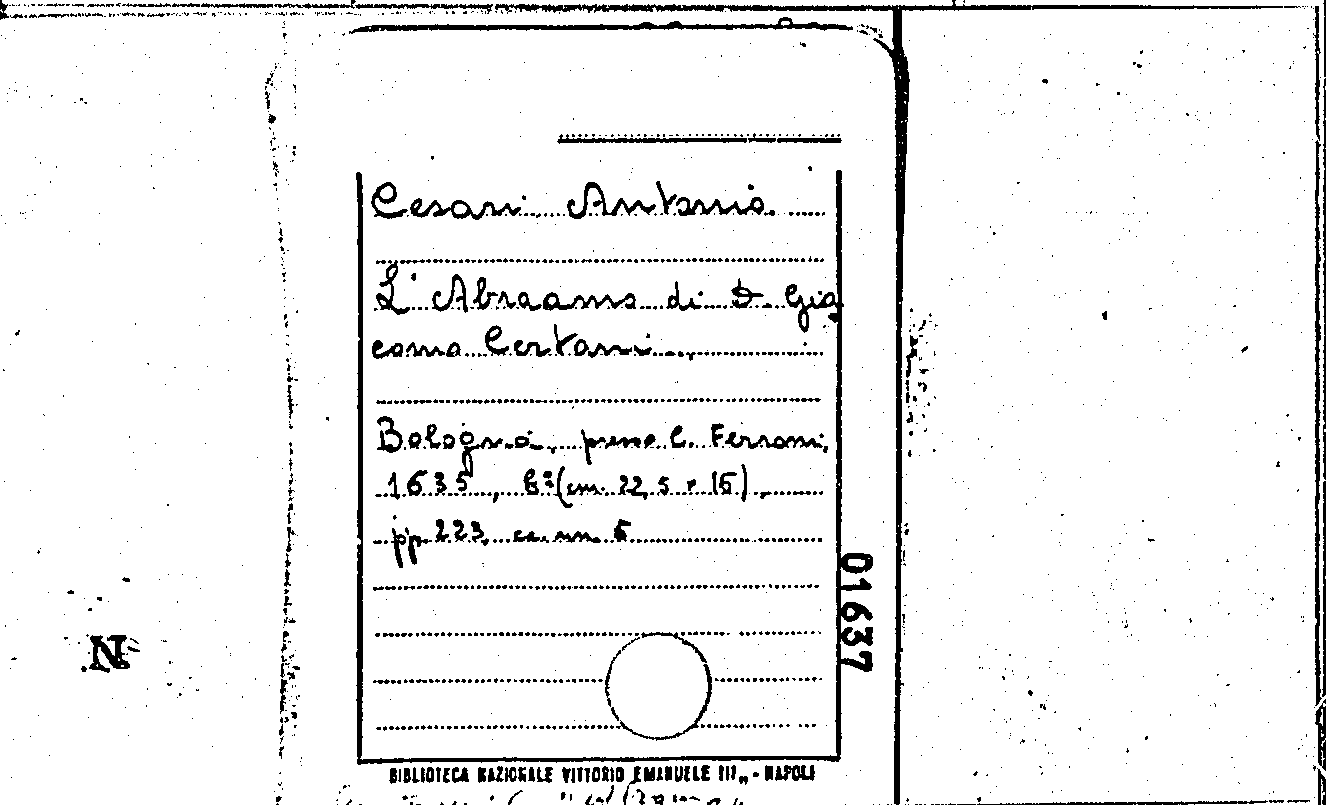 Cesari Antonio
L'Abraamo di D. Gia
como Certani
Bologna, presso C. Ferroni,
1635, 8º (cm. 22,5 x 16),
pp. 223, cc. nn. 6
01637
N
BIBLIOTECA NAZIONALE VITTORIO EMANUELE III„ - NAPOLI